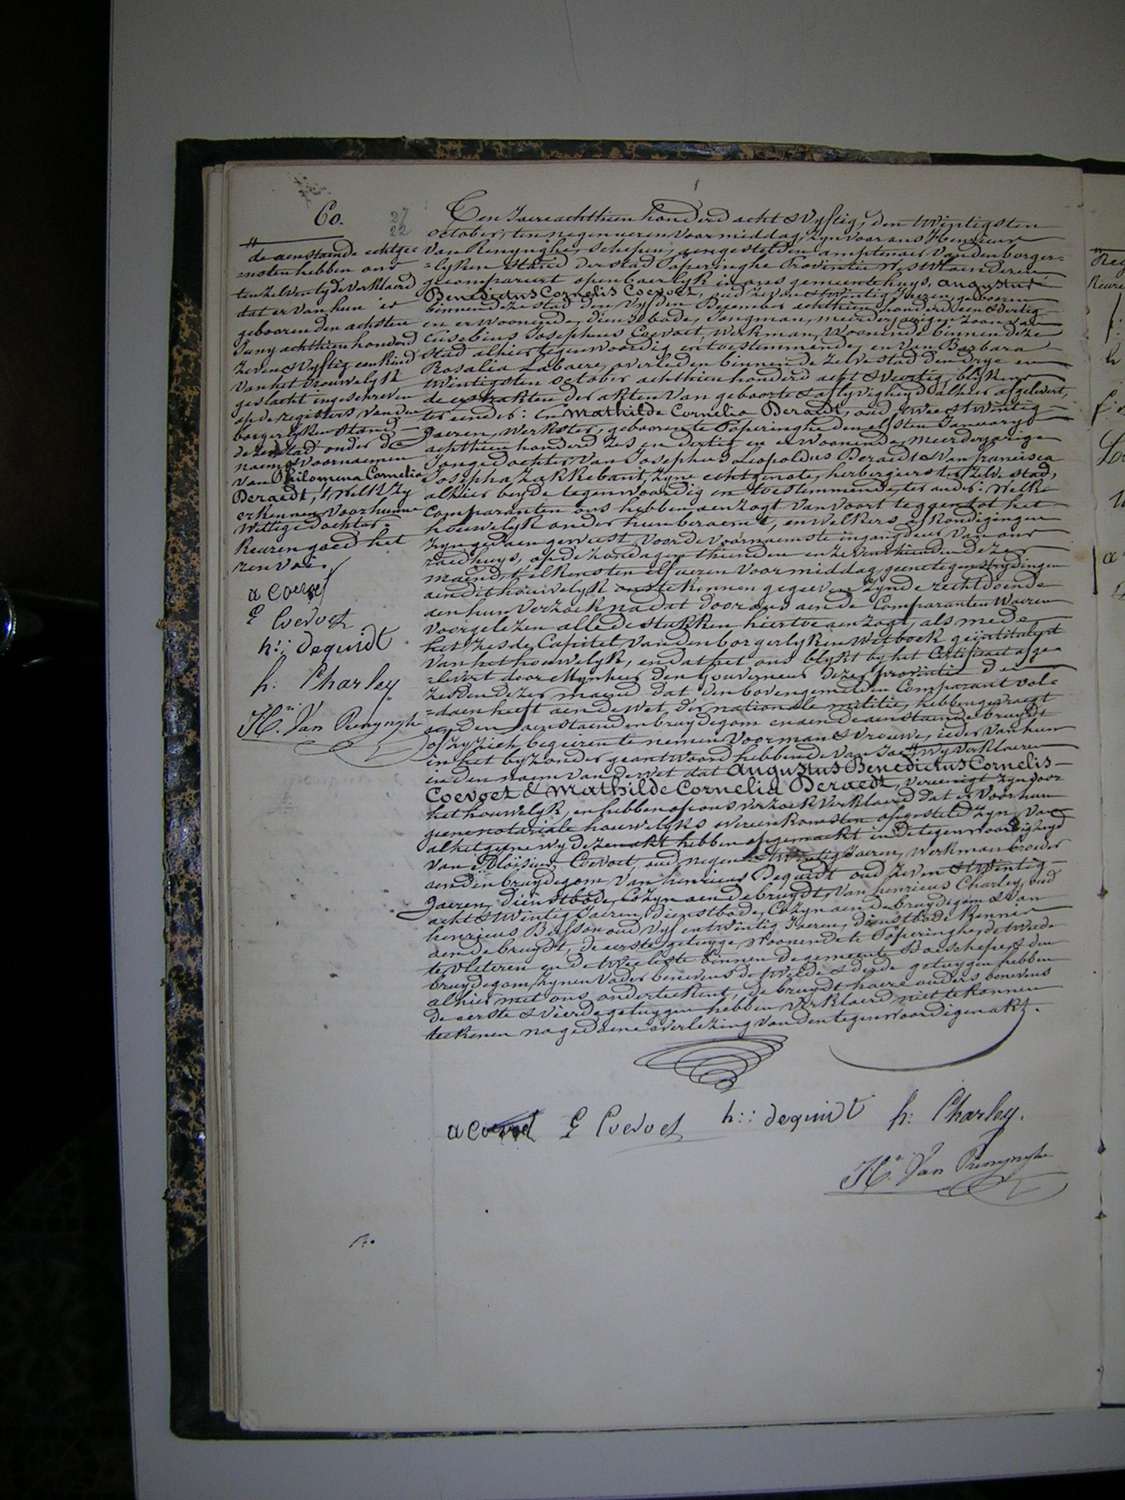 60.
27
22
de aenstaende echtge-
=nooten hebben ons
ten zelven tyde verklaerd
dat er van hun is
geboren den achtsten
Juny achthien honderd
zeven & vyftig een kind
van het vrouwelyk
geslacht ingeschreven
op de registers van den
borgerlyken stand
dezer stad onder de
naem & voornaemen
van Philomena Cornelia
Deraedt, 't welk zy
erkennen voor hunne
wettige dochter.
Keuren goed het
renvoi.
a Coevoet
E Coevoet
h:: dequidt
h: Charley
Hri Van Renynghe
Ten Jaere achthien honderd acht & vyftig, den twintigsten
october, ten negen uren voormiddag, zyn voor ons Henricus
Van Renynghe, schepen, aengestelden amptenaer van den borger-
=lyken stand der stad Poperinghe Provintie West Vlaenderen
gecompareert openbaerlyk in ons gemeentehuys, Augustus
Benedictus Cornelis Coevoet, oud zeven & twintig jaeren geboren
binnen deze stad den vyfden December achthien honderd een & dertig
en er woonende, dienstbode, Jongman, meerderjaerige zoon van
Eusebius Josephus Coevoet, werkman, woonende binnen deze
stad alhier tegenwoordig en toestemmende, en van Barbara
Rosalia Labaere, overleden binnen de zelve stad den drye en
twintigsten october achthien honderd acht & veertig, blyken
de extrakten der akten van geboorte & aflyvigheyd alhier afgelevert,
ter eender: en Mathilde Cornelia Deraedt, oud twee & twintig
Jaeren, werkster, geboren te Poperinghe den elfsten January
achthien honderd zes en dertig en er woonende, meerderjarige
Jonge dochter van Josephus Leopoldus Deraedt & van Francisca
Josepha Zakkebant, zyne echtgenote, herbergiers ter zelve stad,
alhier beyde tegenwoordig en toestemmende, ter ander: welke
comparanten ons hebben aenzogt van voort te gaen tot het
houwelyk onder hun beraemd, en welkers afkondigingen
zyn gedaen geweest voor de voornaemste ingangdeur van ons
raedhuys, op de zondagen thienden en zeventhienden dezer
maend, telkens ten elf uren voormiddag, geene tegenstrydingen
aen dit houwelyk ons te kennen gegeven zynde recht doende
aen hun verzoek na dat door ons aen de Comparanten waren
voorgelezen alle de stukken hiertoe aenzogt, als mede
het zesde Capitel van den borgerlyken Wetboek geïntituleerd
van het houwelyk, en dat het ons blykt by het Certificaet afge-
=levert door Mynheer den Gouverneur dezer Provintie den
zesden dezer maend dat den bovengemelden Comparant vol-
=daen heeft aen de wet, der nationale militie, hebben gevraegt
aen den aenstaenden bruydegom en aen de aenstaende bruydt
of zy zich begeiren te nemen voor man & vrouwe, ieder van hun
in het byzonder geantwoord hebbende van Ja, wy verklaeren
in den naem van de wet dat Augustus Benedictus Cornelis
Coevoet & Mathilde Cornelia Deraedt, vereenigt zyn door
het houwelyk en hebben op ons verzoek verklaerd dat er voor hun
geene notariale houwelyks overeenkomsten opgesteld zyn, van
al hetgene wy deze akt hebben opgemaekt in de tegenwoordigheyd
van Aloïsius Coevoet, oud negen & twintig Jaeren, werkman broeder
aen den bruydegom, van henricus Dequidt oud zeven & twintig
Jaeren, dienstbode, Cozyn aen de bruydt, van henricus Charley, oud
acht & twintig Jaeren, dienstbode, Cozyn aen de bruydegom & van
henricus Busson oud vyf en twintig Jaeren, dienstbode kennis
aen de bruydt, de eerste getuyge woonende te Poperinghe, de twede
te Vleteren en de twee leste binnen de gemeente Boeschepe & den
bruydegom, zynen vader benevens de twede & derde getuygen hebben
alhier met ons onderteekent, de bruydt haere ouders benevens
de eerste & vierde getuygen hebben verklaerd niet te konnen
teekenen na gedaene overlezing van den tegenwoordigen akt.
a Coevoet E Coevoet h:: dequidt h: Charley.
Hri Van Renynghe